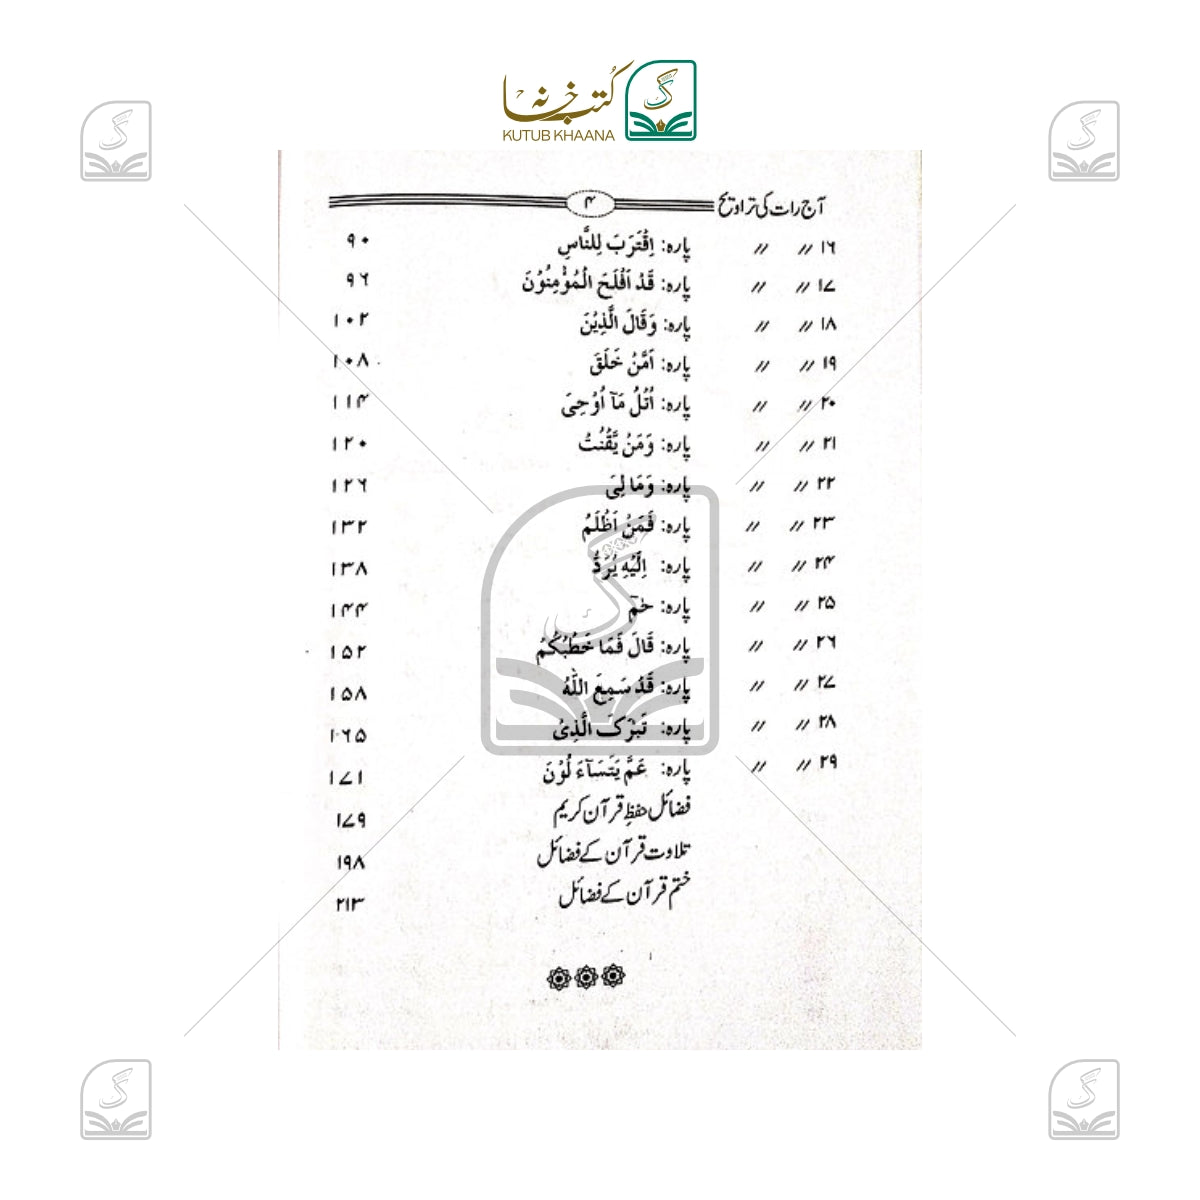 کُتب خانہ
KUTUB KHAANA
آج رات کی تراویح ۴
۱۶ 〃 〃 پارہ: اِقْتَرَبَ لِلنَّاسِ ۹۰
۱۷ 〃 〃 پارہ: قَدْ اَفْلَحَ الْمُؤْمِنُوْنَ ۹۶
۱۸ 〃 〃 پارہ: وَقَالَ الَّذِيْنَ ۱۰۲
۱۹ 〃 〃 پارہ: اَمَّنْ خَلَقَ ۱۰۸
۲۰ 〃 〃 پارہ: اُتْلُ مَآ اُوْحِیَ ۱۱۴
۲۱ 〃 〃 پارہ: وَمَنْ يَّقْنُتْ ۱۲۰
۲۲ 〃 〃 پارہ: وَمَا لِیَ ۱۲۶
۲۳ 〃 〃 پارہ: فَمَنْ اَظْلَمُ ۱۳۲
۲۴ 〃 〃 پارہ: اِلَيْهِ يُرَدُّ ۱۳۸
۲۵ 〃 〃 پارہ: حٰمٓ ۱۴۴
۲۶ 〃 〃 پارہ: قَالَ فَمَا خَطْبُكُمْ ۱۵۲
۲۷ 〃 〃 پارہ: قَدْ سَمِعَ اللّٰهُ ۱۵۸
۲۸ 〃 〃 پارہ: تَبٰرَكَ الَّذِیْ ۱۶۵
۲۹ 〃 〃 پارہ: عَمَّ يَتَسَآءَ لُوْنَ ۱۷۱
فضائل حفظِ قرآن کریم ۱۷۹
تلاوت قرآن کے فضائل ۱۹۸
ختم قرآن کے فضائل ۲۱۳